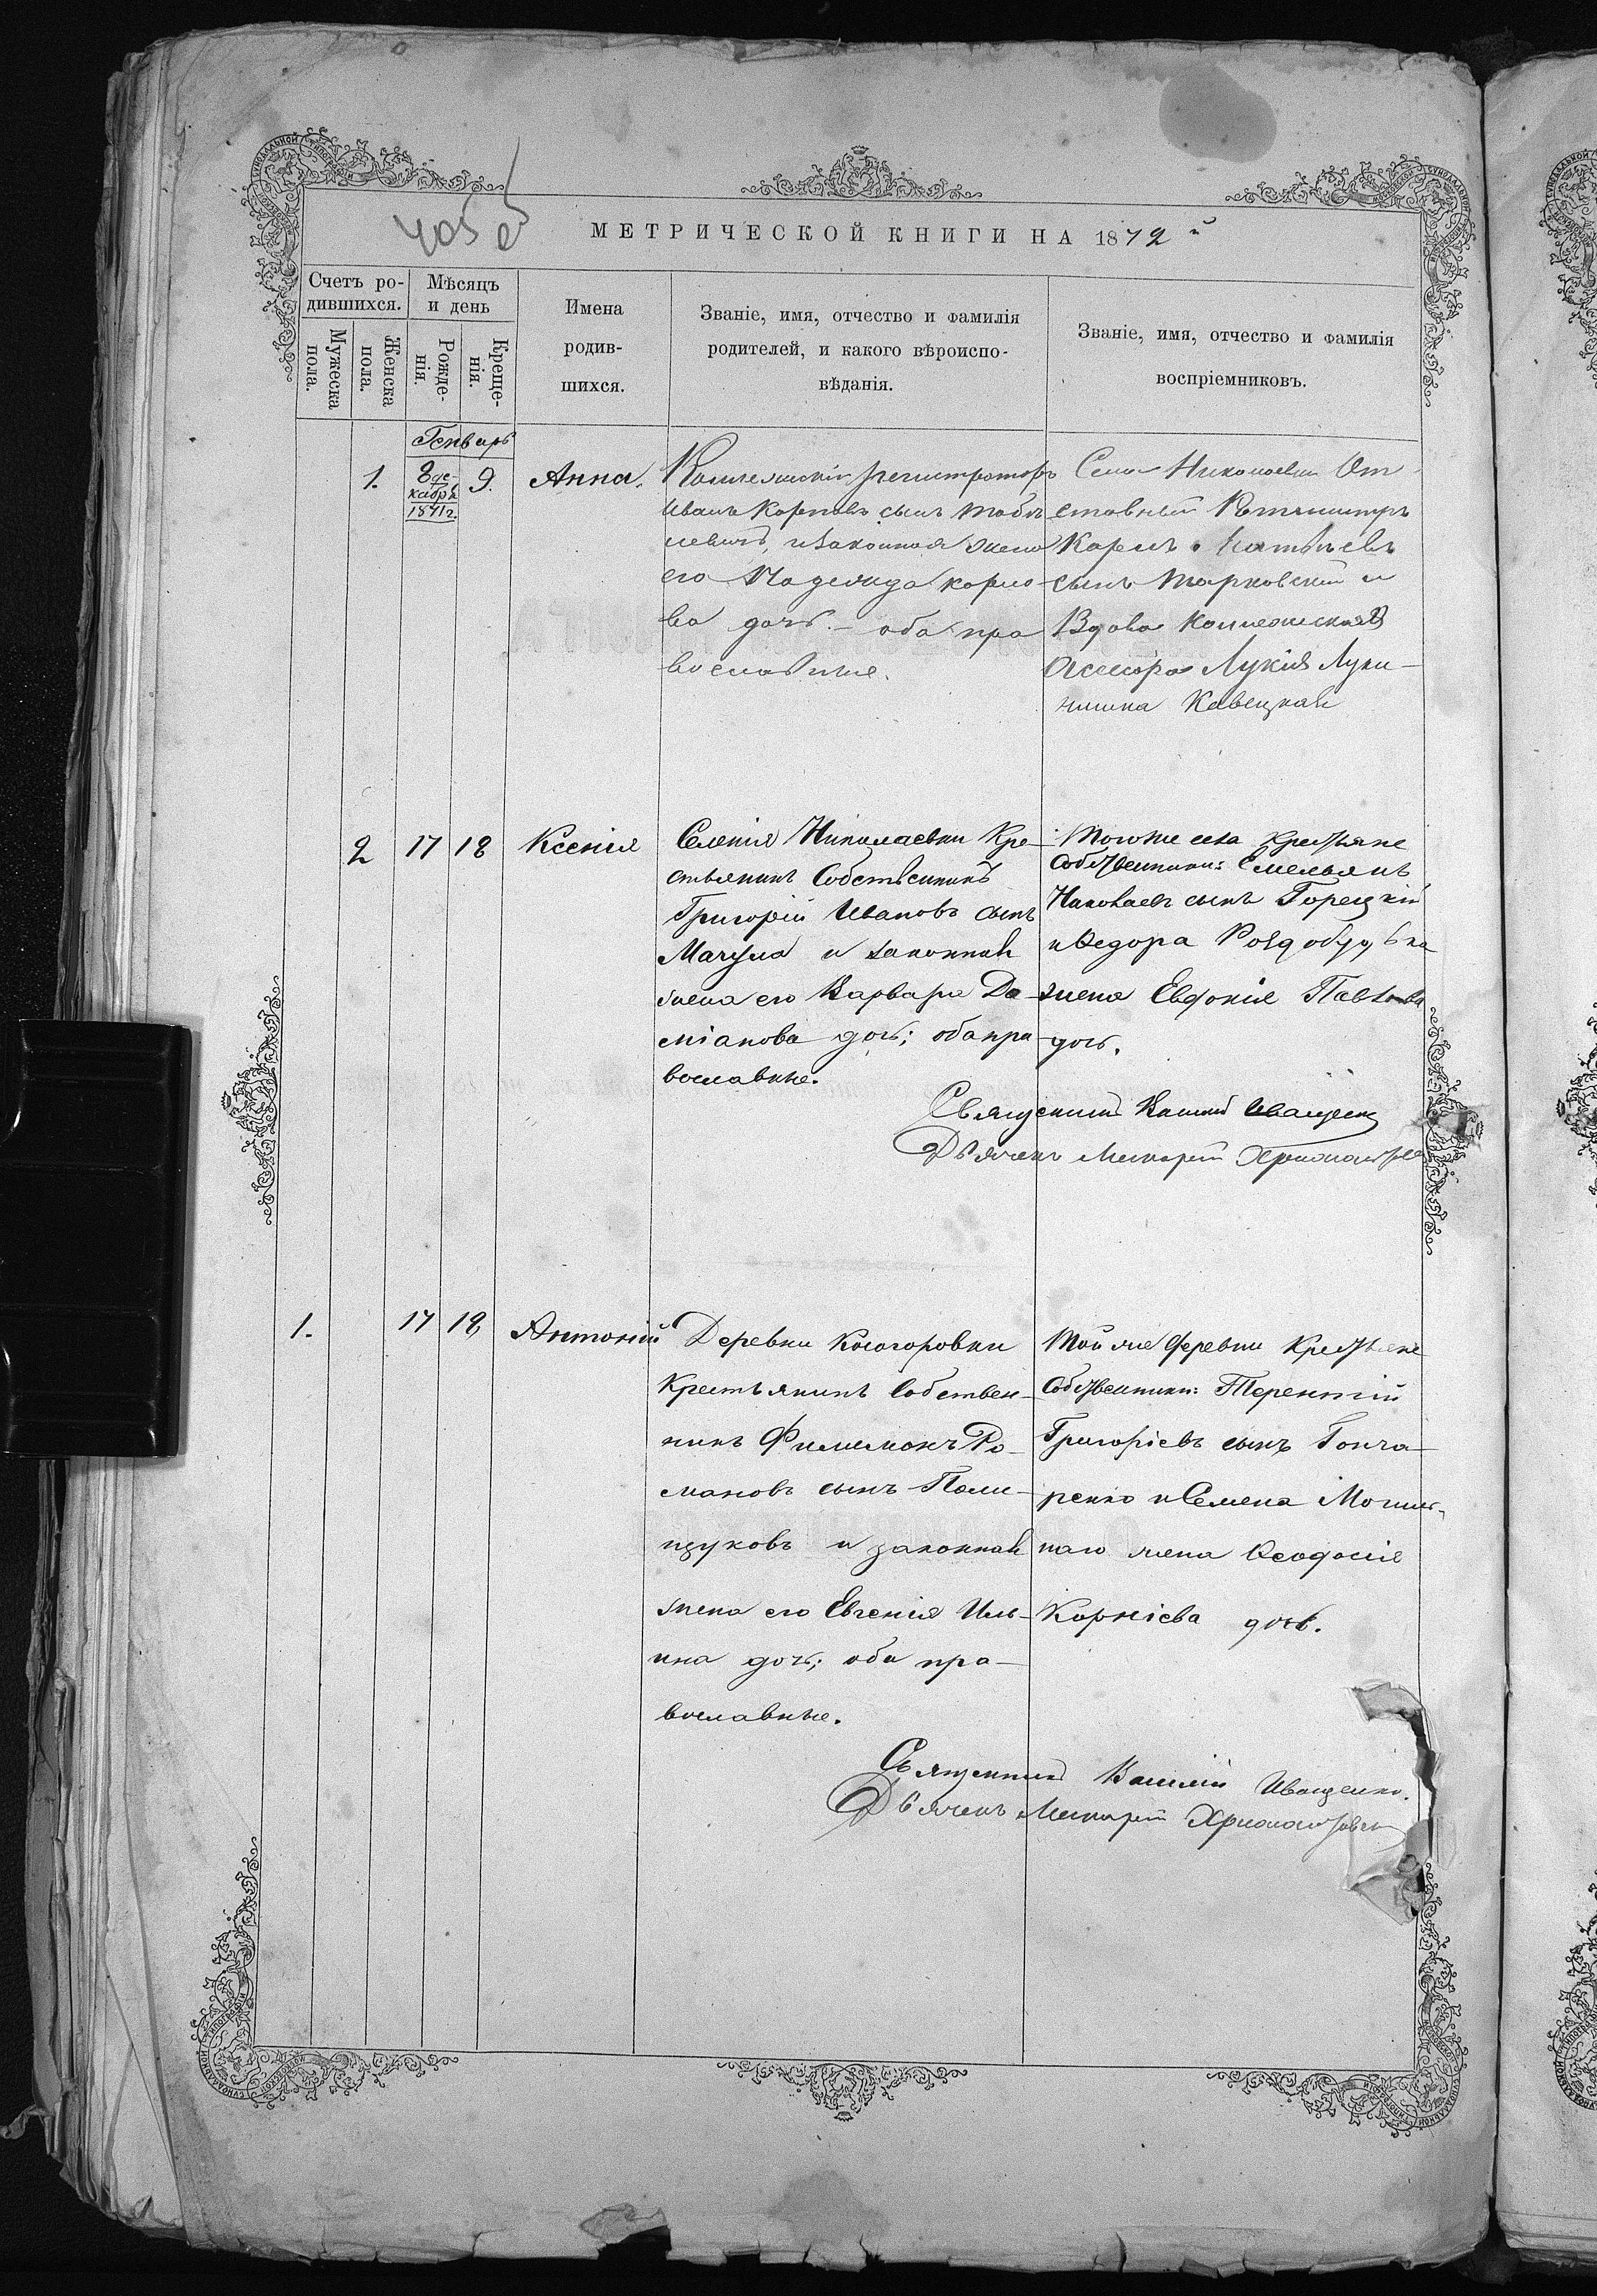 405 об
МЕТРИЧЕСКОЙ КНИГИ НА 1872 й
Счетъ ро-
дившихся.
Мужеска
пола.
Женска
пола.
Мѣсяцъ
и день
Рожде-
нія.
Креще-
нія.
Имена
родив-
шихся.
Званіе, имя, отчество и фамилія
родителей, и какого вѣроиспо-
вѣданія.
Званіе, имя, отчество и фамилія
воспріемниковъ.
Генварь
1.
8 де
кабря
1871 г.
9.
Анна.
Коллежскій регистраторъ
Иванъ Карповъ сынъ Тобл
левичъ, и законная жена
его Надежда Карпо-
ва дочь. — оба пра
вославные.
Села Николаевки От-
ставный Ротмистръ
Карлъ Матвѣевъ
сынъ Тарковскій и
Вдова Коллежская
Асесора Лукія Луки-
нишна Кавецкая
2
17
18
Ксенія
Селенія Николаевки Кре-
стьянинъ Собственникъ
Григорій Ивановъ сынъ
Мачула и законная
жена его Варвара Да-
міанова дочь; оба пра
вославные.
Того же села крестьяне
Собственники: Емельянъ
сынъ Горецкій
и Ѳедора
жена Евдокія Павлова
дочь.
Священникъ Василій Иващенко
Дьячекъ
1.
17
18
Антоній
Деревни Косогоровки
Крестьянинъ Собствен-
никъ Филимонъ Ро-
мановъ сынъ Поли-
щуковъ и законная
жена его Евгенія Иль-
ина дочь; оба пра-
вославные.
Той же деревни Крестьяне
Собственники: Терентій
Григоріевъ сынъ Гонча-
ренко и Семена Могиль-
наго жена Ѳеодосія
Корнієва дочь.
Священникъ Василій Иващенко.
Дьячекъ